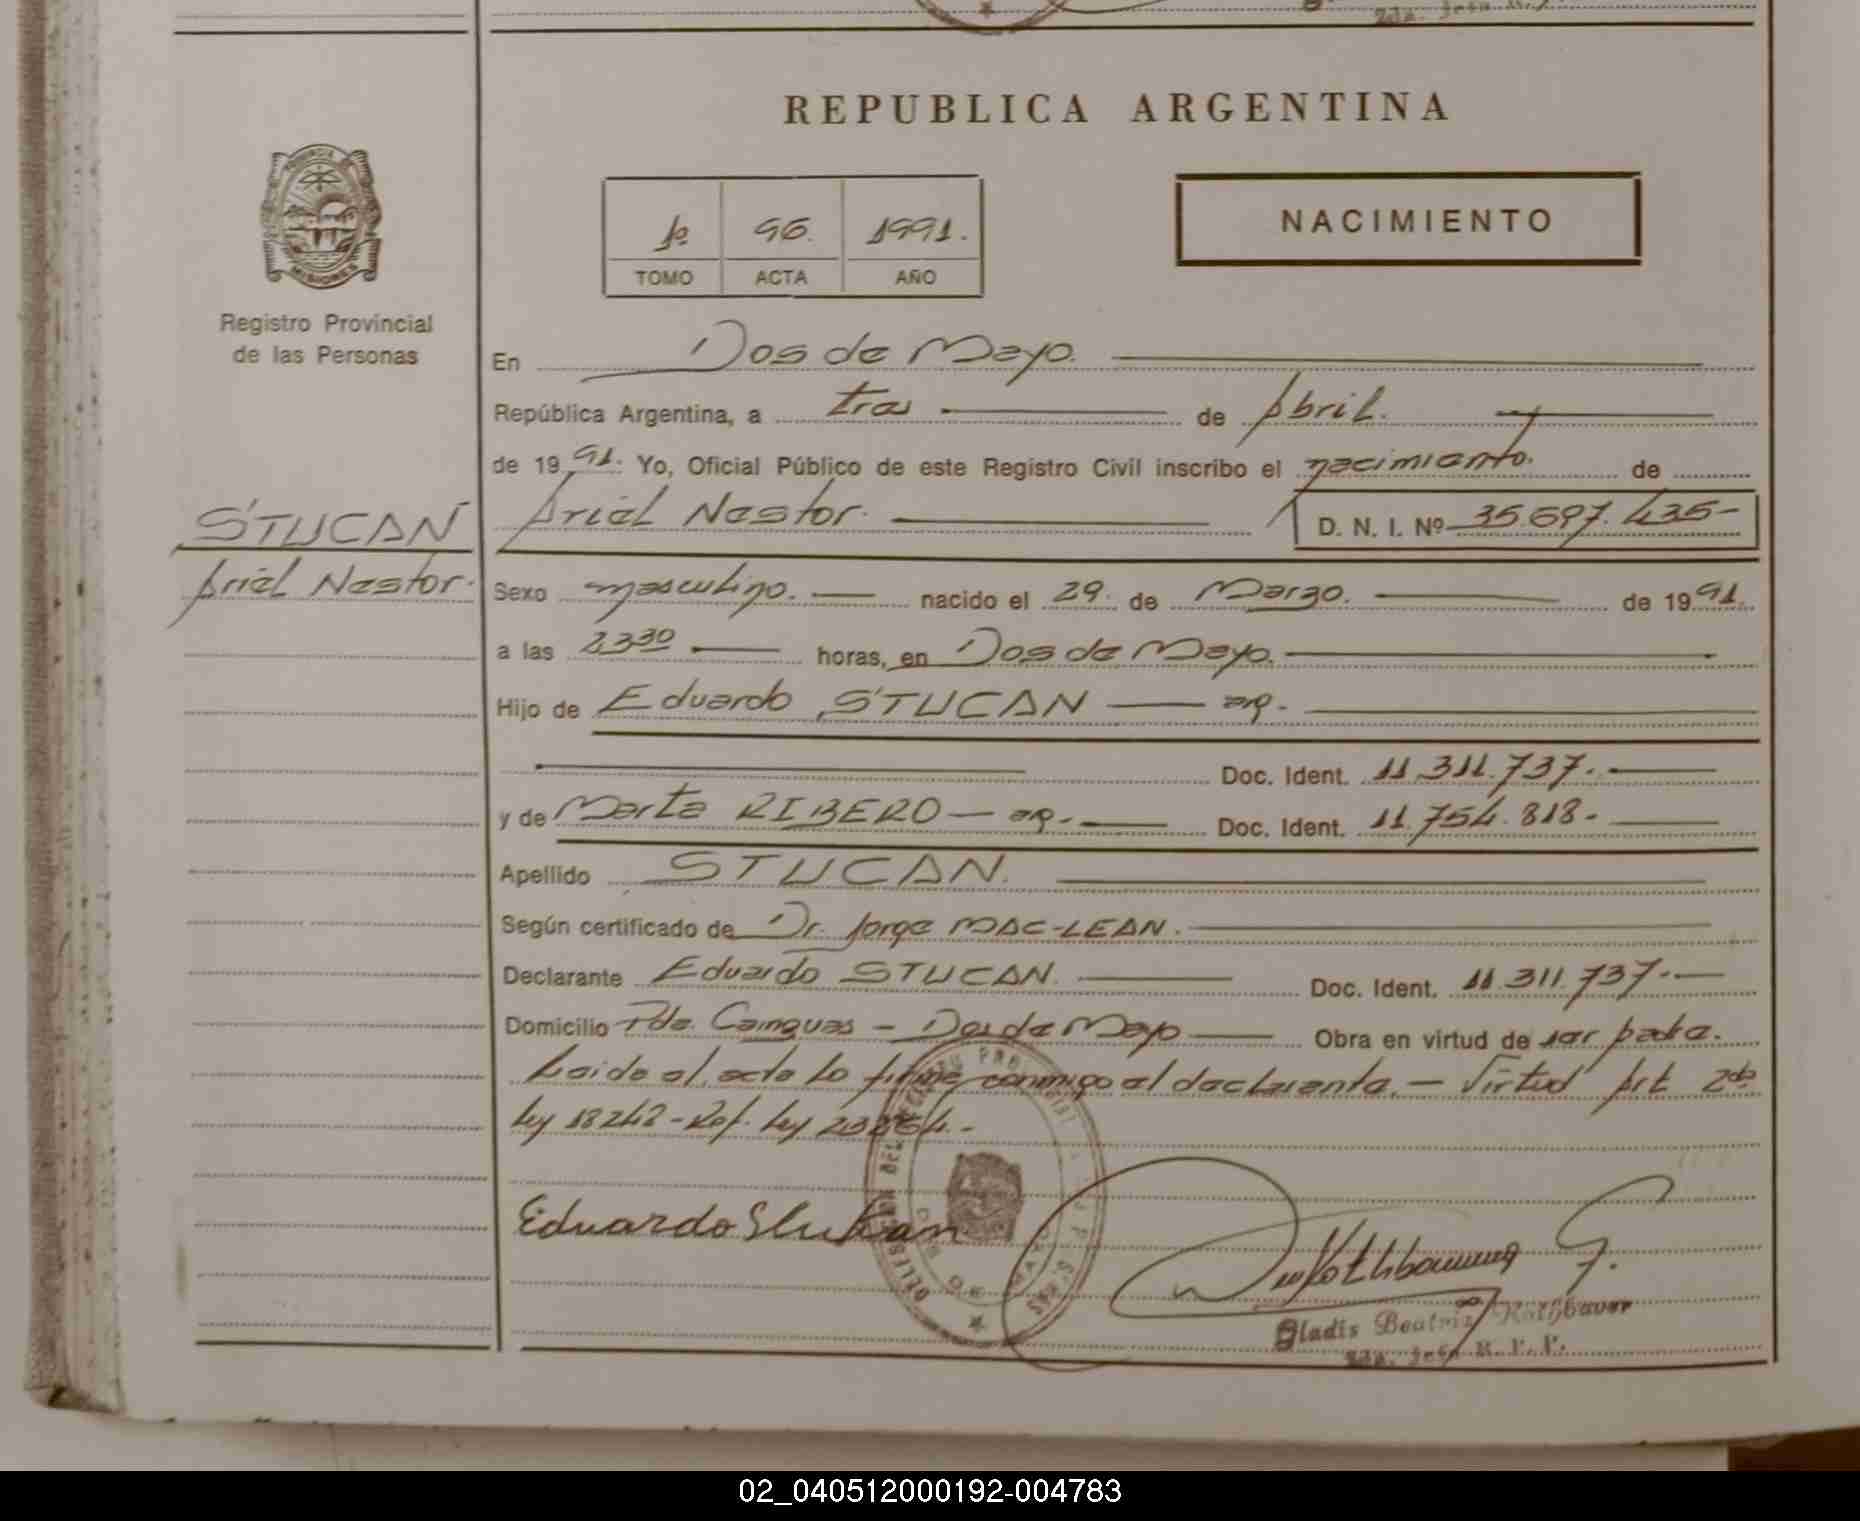 REPUBLICA ARGENTINA
PROVINCIA DE
MISIONES
Registro Provincial
de las Personas
1º 96. 1991.
TOMO ACTA AÑO
NACIMIENTO
En Dos de Mayo.
República Argentina, a tres de Abril.
de 1991. Yo, Oficial Público de este Registro Civil inscribo el nacimiento. de
Ariel Nestor.
D. N. I. Nº 35.697.435-
STUCAN
Ariel Nestor.
Sexo masculino. nacido el 29. de Marzo. de 1991.
a las 23 30 horas, en Dos de Mayo.
Hijo de Eduardo STUCAN — arg.
Doc. Ident. 11.311.737.-
y de Marta RIBERO — arg.- Doc. Ident. 11.754.818.-
Apellido STUCAN.
Según certificado de Dr. Jorge MAC-LEAN.
Declarante Eduardo STUCAN. Doc. Ident. 11.311.737.-
Domicilio Pda. Cainguas - Dos de Mayo Obra en virtud de ser padre.
Leido el acta lo firma conmigo el declarante. — Virtud Art 2do
Ley 18248 - Ref. Ley 23264.-
Eduardo Stucan
Gladis Beatriz Rothbauer
R. P. P.
02_040512000192-004783